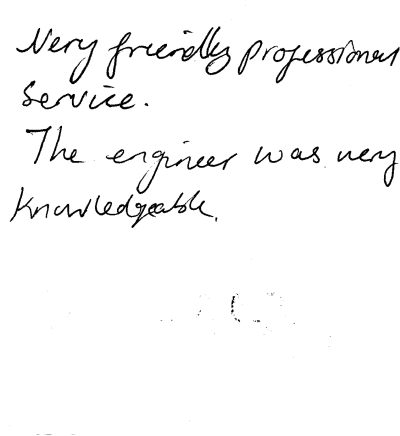 Very friendly professional
service.
The engineer was very
knowledgeable.